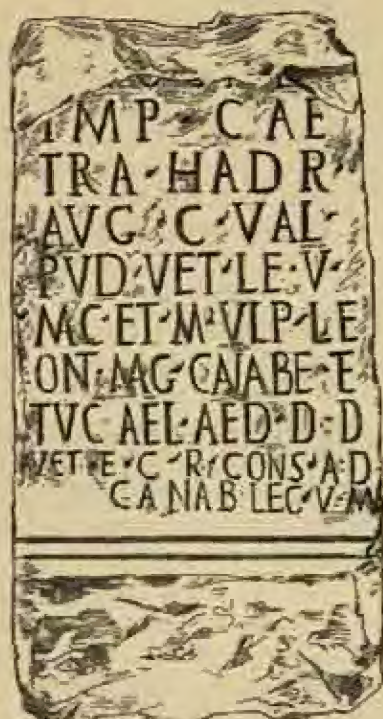 IMP · CAE
TRA · HADR ·
AVG · C · VAL ·
PVD · VET · LE · V ·
MC · ET · M · VLP · LE
ON · MAG · CAIABE · E
TVC AEL · AED · D · D
VET · E · C · R · CONS · A · D
CANAB LEC · V · M